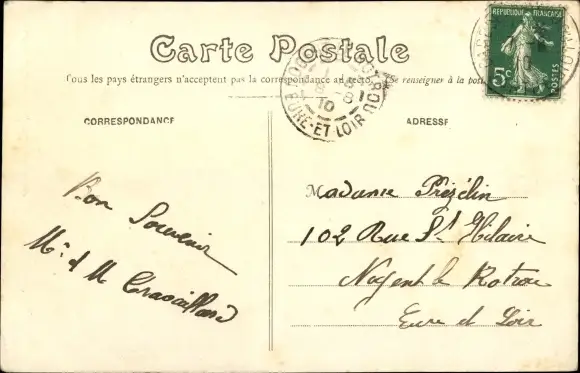 Carte Postale
Tous les pays étrangers n'acceptent pas la correspondance au recto. Se renseigner à la poste
RÉPUBLIQUE FRANÇAISE
5c
POSTES
NOGENT ROTROU
8-8
10
EURE-ET-LOIR
CORRESPONDANCE
ADRESSE
Bon Souvenir
Mr & M
Madame Prézélin
102 Rue St Hilaire
Nogent le Rotrou
Eure et Loir